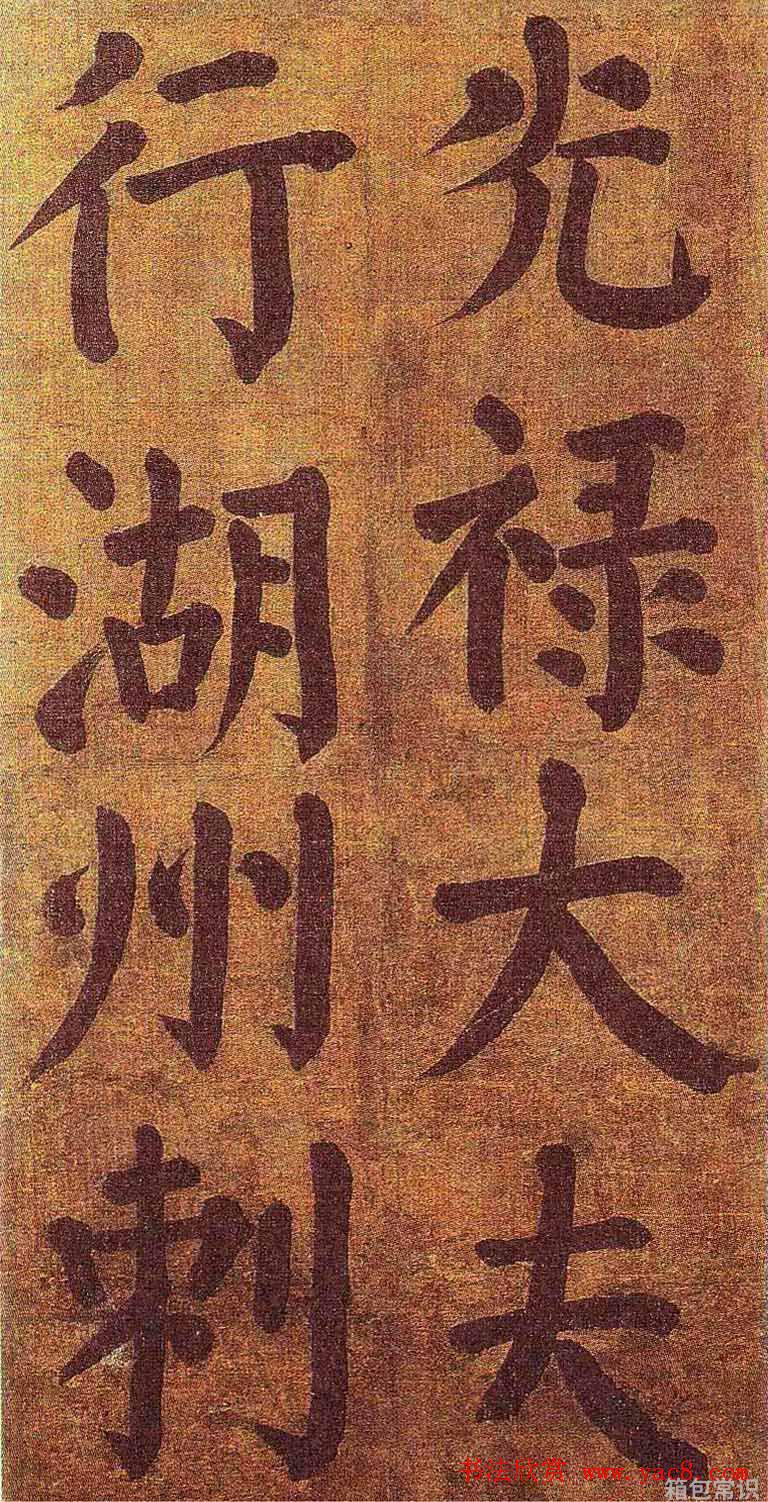 光禄大夫
行湖州刺
书法欣赏 www.yac8.com
箱包常识